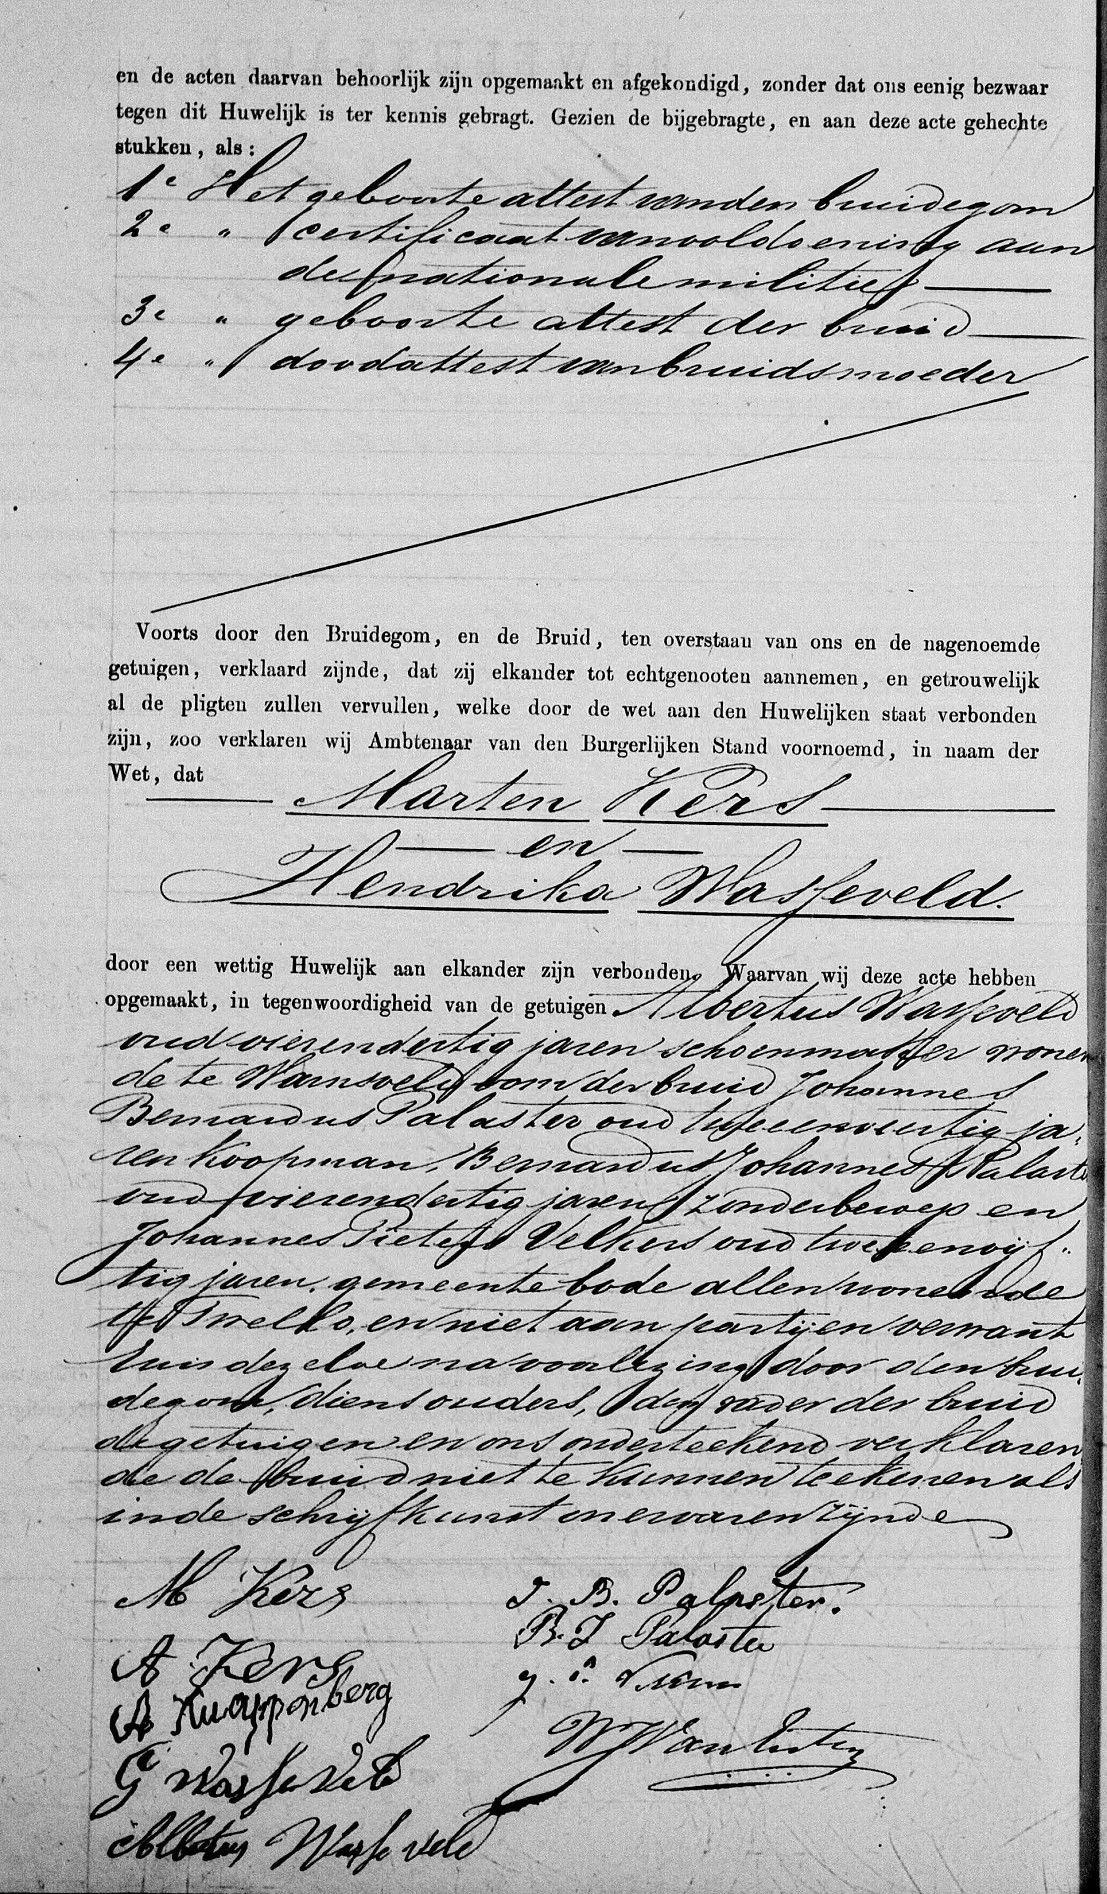 en de acten daarvan behoorlijk zijn opgemaakt en afgekondigd, zonder dat ons eenig bezwaar
tegen dit Huwelijk is ter kennis gebragt. Gezien de bijgebragte, en aan deze acte gehechte
stukken, als:
1e Het geboorte attest van den bruidegom
2e " certificaat van voldoening aan
de nationale militie
3e " geboorte attest der bruid
4e " doodattest van bruidsmoeder
Voorts door den Bruidegom, en de Bruid, ten overstaan van ons en de nagenoemde
getuigen, verklaard zijnde, dat zij elkander tot echtgenooten aannemen, en getrouwelijk
al de pligten zullen vervullen, welke door de wet aan den Huwelijken staat verbonden
zijn, zoo verklaren wij Ambtenaar van den Burgerlijken Stand voornoemd, in naam der
Wet, dat
Marten Kers
en
Hendrika Wasseveld.
door een wettig Huwelijk aan elkander zijn verbonden. Waarvan wij deze acte hebben
opgemaakt, in tegenwoordigheid van de getuigen Albertus Wasseveld
oud vierendertig jaren schoenmaker wonen
de te Warnsveld oom der bruid Johannes
Bernardus Palaster oud tweeenveertig ja,
ren koopman, Bernardus Johannes Palaste
oud vierendertig jaren zonder beroep en
Johannes Pieter Velkers oud tweeenvijf„
tig jaren, gemeente bode allen wonende
te Twello, en niet aan partijen verwant
En is dezelve na voorlezing door den brui,
degom, diens ouders, den vader der bruid
de getuigen en ons onderteekend verklaren
de de bruid niet te kunnen teekenen als
in de schrijfkunst onervaren zijnde
M Kers
J. B. Palaster.
B. J Palaster
A Kers
A Knappenberg
G Wasseveld
Albertus Wasseveld